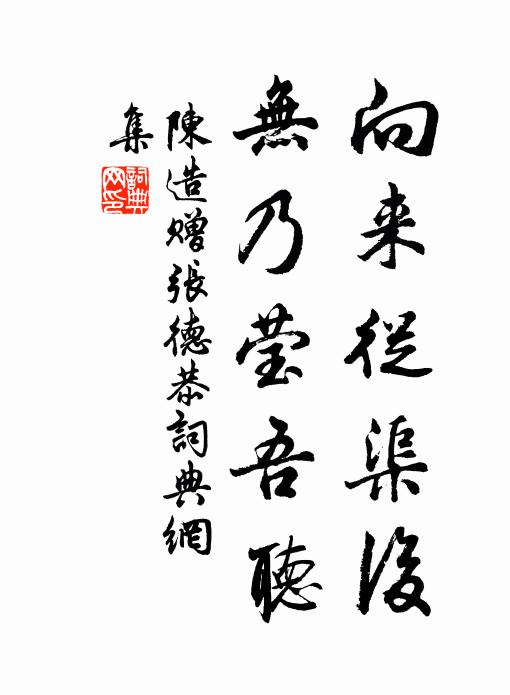 向来從渠後
無乃莹吾聽
陳造贈張德恭詞典網
集
詞典网印